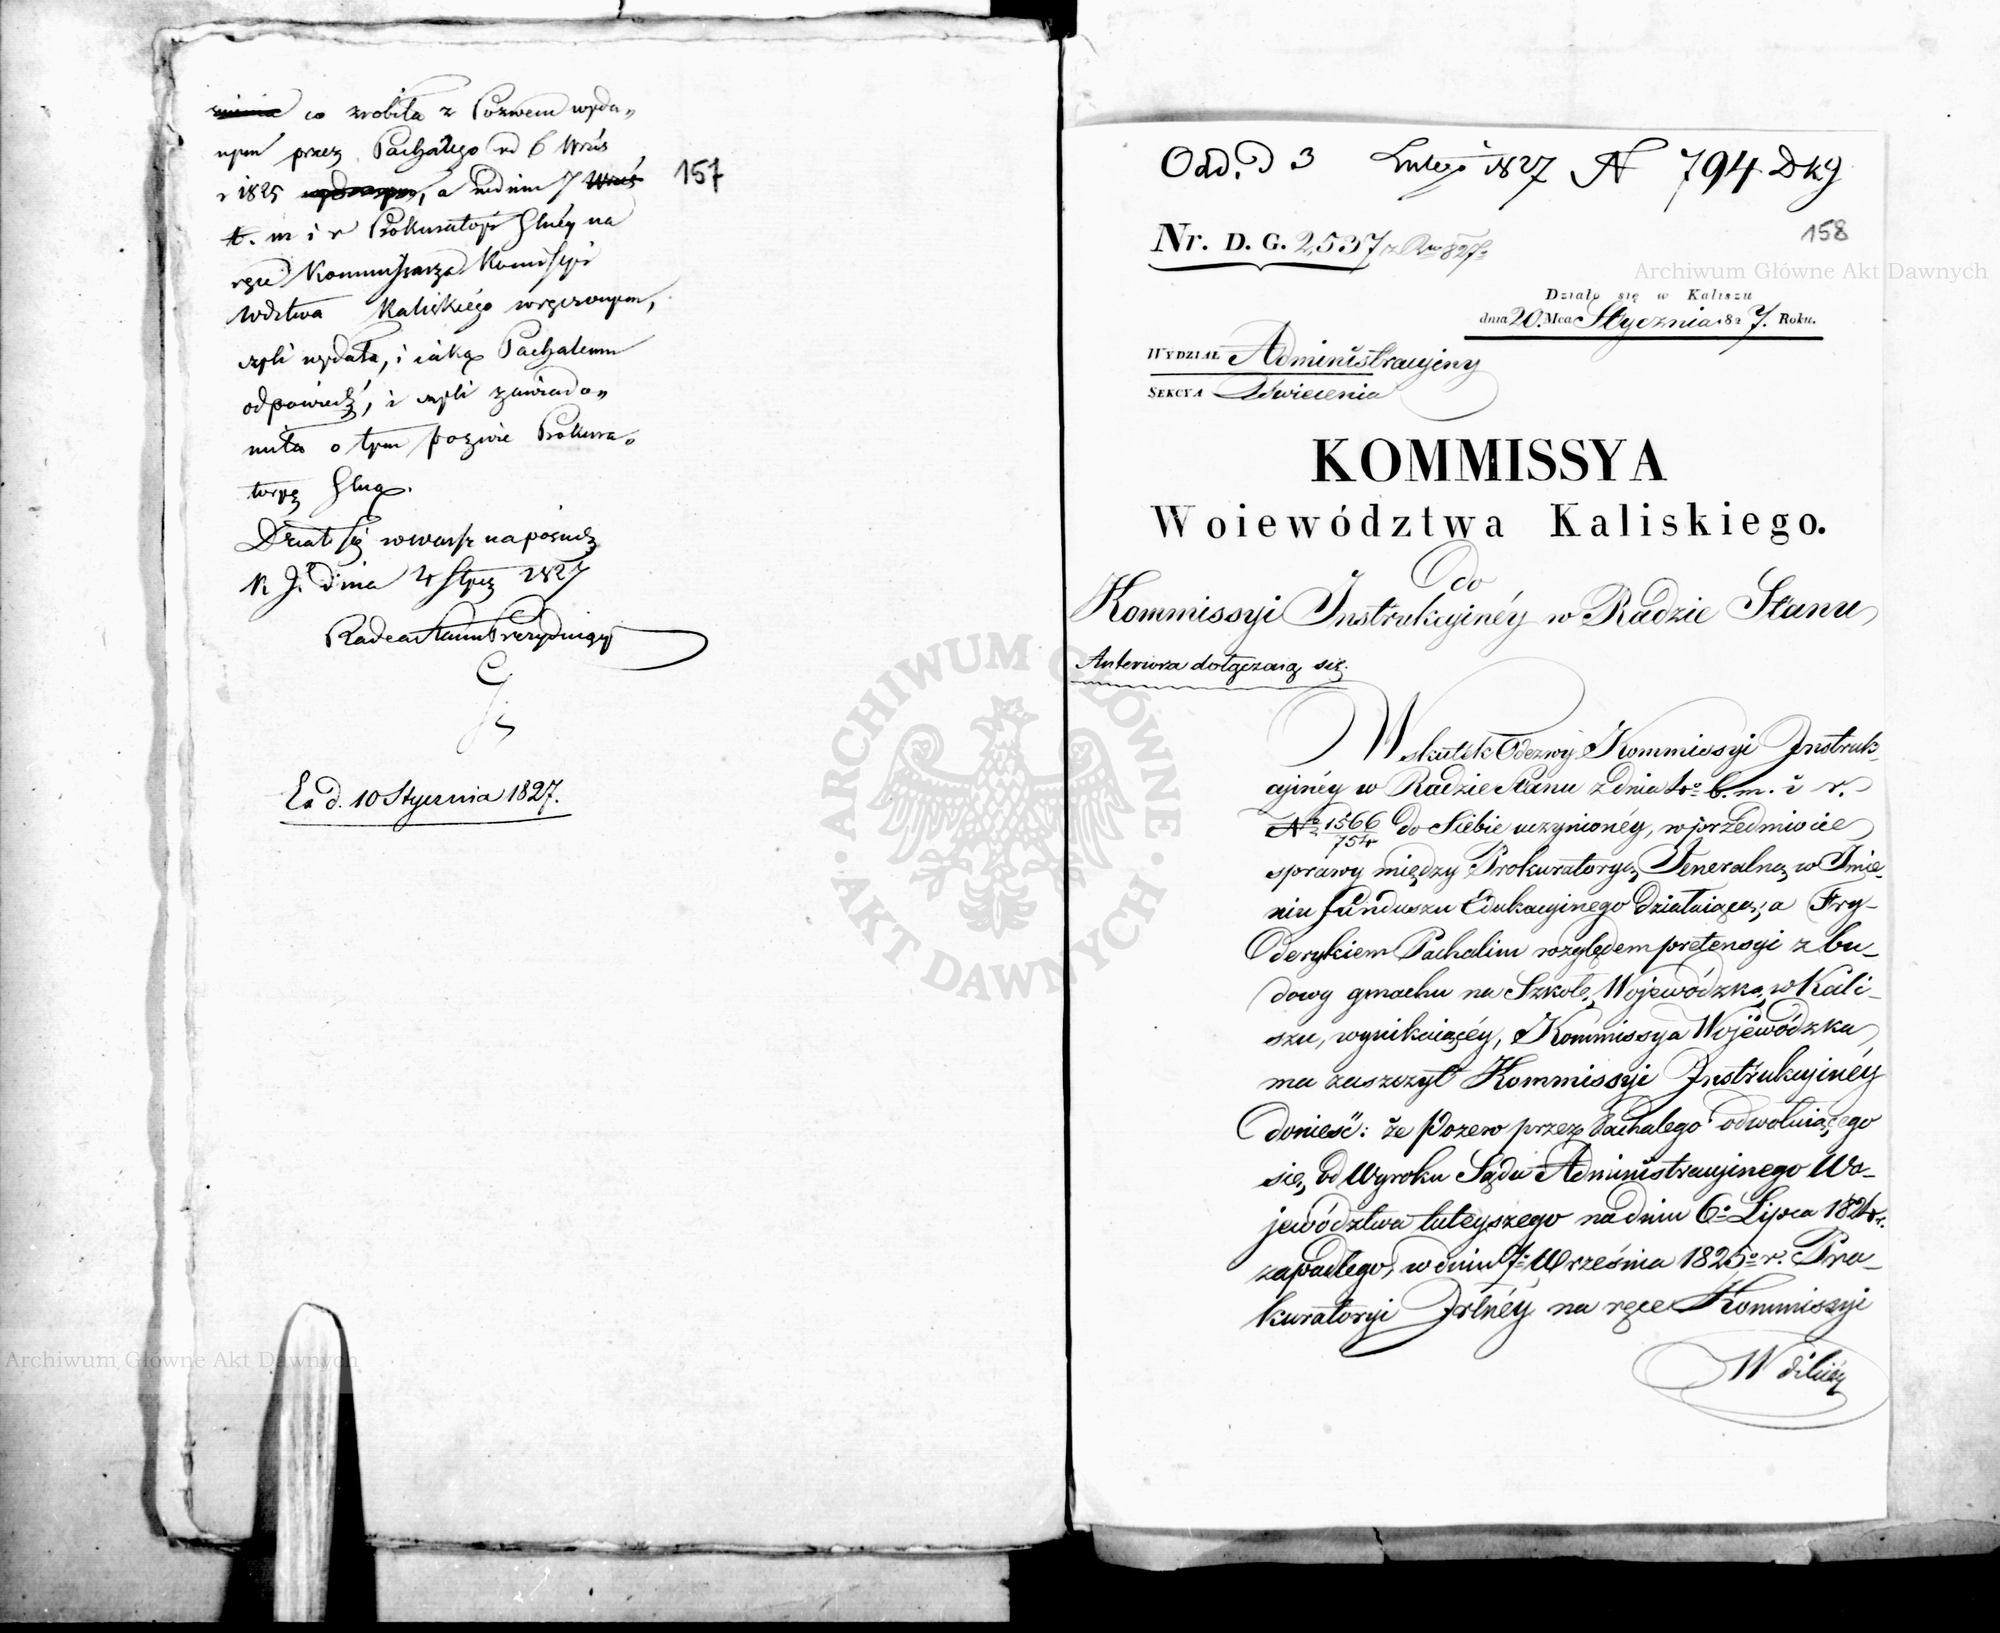 co zrobiła z Pozwem wyda„
nym przez Pachalego od 6 Wrześ
r 1825, a w dniu 7 Wrześ
t. m i r Prokuratoryi Glnéy na
ręce Kommissarza Komissyi
Wdztwa Kaliskiego wręczonym,
czyli wydała, i iaką Pachalemu
odpowiedź, i czyli zawiado„
miła o tym pozwie Prokura„
toryę Glną.
Działo się w Warsz na posiedz
K J. dnia 4 Stycz 1827
Radca Stanu Prezyduiący
Ex d. 10 Stycznia 1827.
157
Odd. D 3 Lutego 1827 N 794 Dkg
158
Nr. D. G. 2,537
Działo się w Kaliszu
dnia 20. Mca Stycznia 1827. Roku.
WYDZIAŁ Administracyjny
SEKCYA Oświecenia
KOMMISSYA
Woiewództwa Kaliskiego.
Do
Kommissyi Instrukcyinéy w Radzie Stanu
Anteriora dołączaią się.
Wskutek Odezwy Kommissyi Instruk-
cyinéy w Radzie Stanu z dnia 4º b. m. i r.
Nº 1566/754 do Siebie uczynionéy, w przedmiocie
sprawy między Prokuratoryą Jeneralną w Imie-
niu funduszu Edukacyinego działaiącą, a Fry-
derykiem Pachalim względem pretensyi z bu-
dowy gmachu na Szkołę Wojewódzką w Kali-
szu, wynikaiącéy, Kommissya Wojewódzka
ma zaszczyt Kommissyi Instrukcyinéy
donieść: że Pozew przez Pachalego odwołuiącego
się od Wyroku Sądu Administracyinego Wo-
jewództwa tuteyszego na dniu 6º Lipca 1824 r.
zapadłego, w dniu 7º Września 1825º r. Pro-
kuratoryi Jrlnéy na ręce Kommissyi